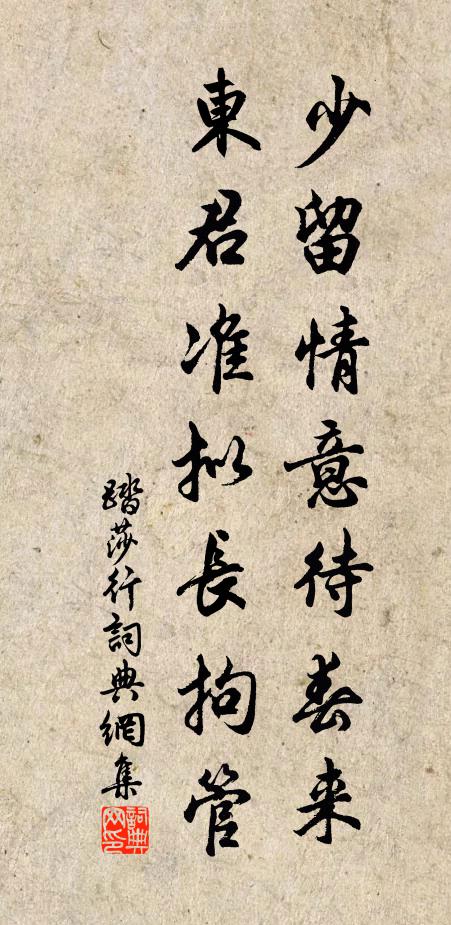 少留情意待春来
東君准拟長拘管
踏莎行詞典網集
詞典
网印